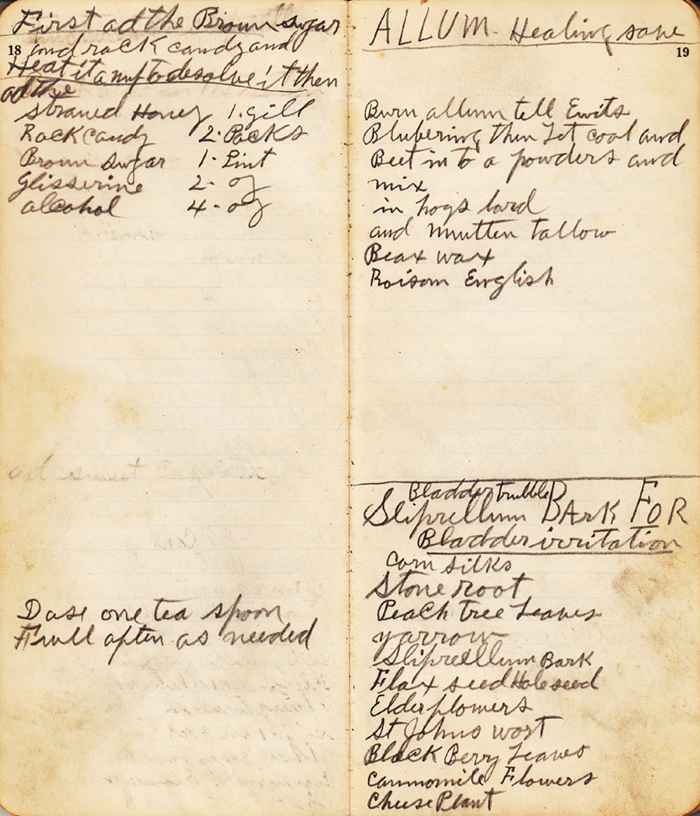 First ad the Broun sugar
18
and rack candy and
Heat it anuf to desolve it then
ad the
Straned Honey 1. gill
Rack candy 2. Packs
Broun Sugar 1. Pint
Glisserine 2. oz
alcohol 4. oz
Dase one tea spoon
Full aften as needed
ALLUM. Healing save
19
Burn allum tell Euits
Blubering then Let cool and
Beet in to a powders and
mix
in hogs lard
and mutten tallow
Beax wax
Roisom English
Bladder trubble
Sliprellum BArK FoR
Bladder irritation
corn silks
Stone root
Peach tree Leaves
yarrow
Sliprellum Bark
Flax seed Hole seed
Elder flowers
St Johns wort
Black Berry Leaves
Cammomile Flowers
Cheese Plant